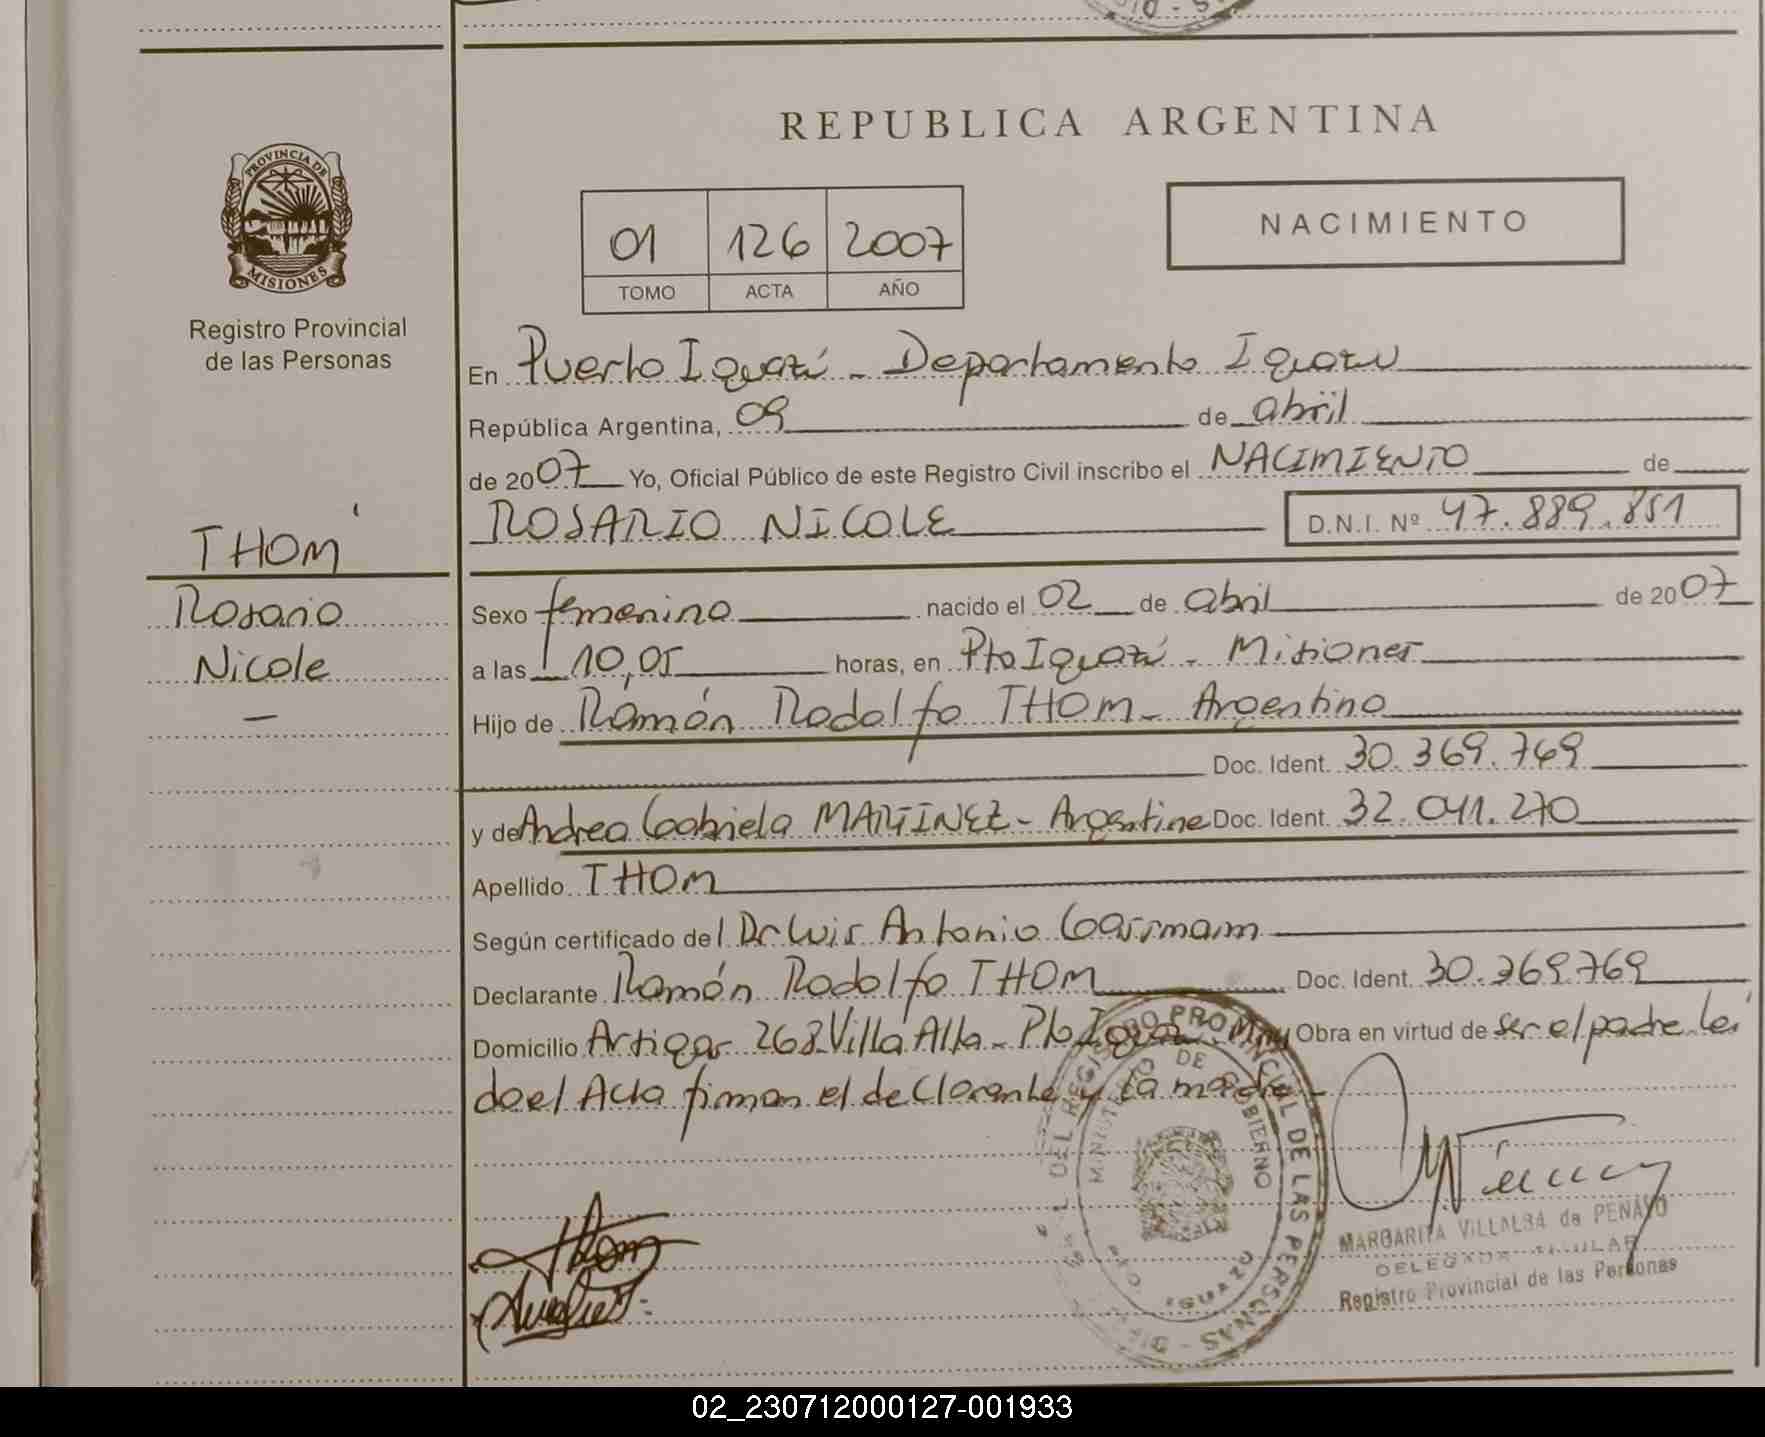 REPUBLICA ARGENTINA
PROVINCIA DE
MISIONES
Registro Provincial
de las Personas
01 126 2007
TOMO ACTA AÑO
NACIMIENTO
En Puerto Iguazú - Departamento Iguazu
República Argentina, 09 de abril
de 2007 Yo, Oficial Público de este Registro Civil inscribo el NACIMIENTO de
ROSARIO NICOLE D.N.I. Nº 47.889.851
THOM
Rosario
Nicole
Sexo femenino nacido el 02 de abril de 2007
a las 10,05 horas, en Pto Iguazú - Misiones
Hijo de Ramón Rodolfo THOM - Argentino
Doc. Ident. 30.369.769
y de Andrea Gabriela MARTINEZ - Argentina Doc. Ident. 32.041.270
Apellido THOM
Según certificado del Dr Luis Antonio
Declarante Ramón Rodolfo THOM Doc. Ident. 30.369.769
Domicilio Artigas 268 Villa Alta - Pto Iguazú Obra en virtud de ser el padre Lei
do el Acta firman el declarante y la madre -
DEL REGISTRO PROVINCIAL DE LAS PERSONAS
MINISTERIO DE GOBIERNO
PTO IGUAZU
Thom
MARGARITA VILLALBA de PENAYO
DELEGADA TITULAR
Registro Provincial de las Personas
02_230712000127-001933